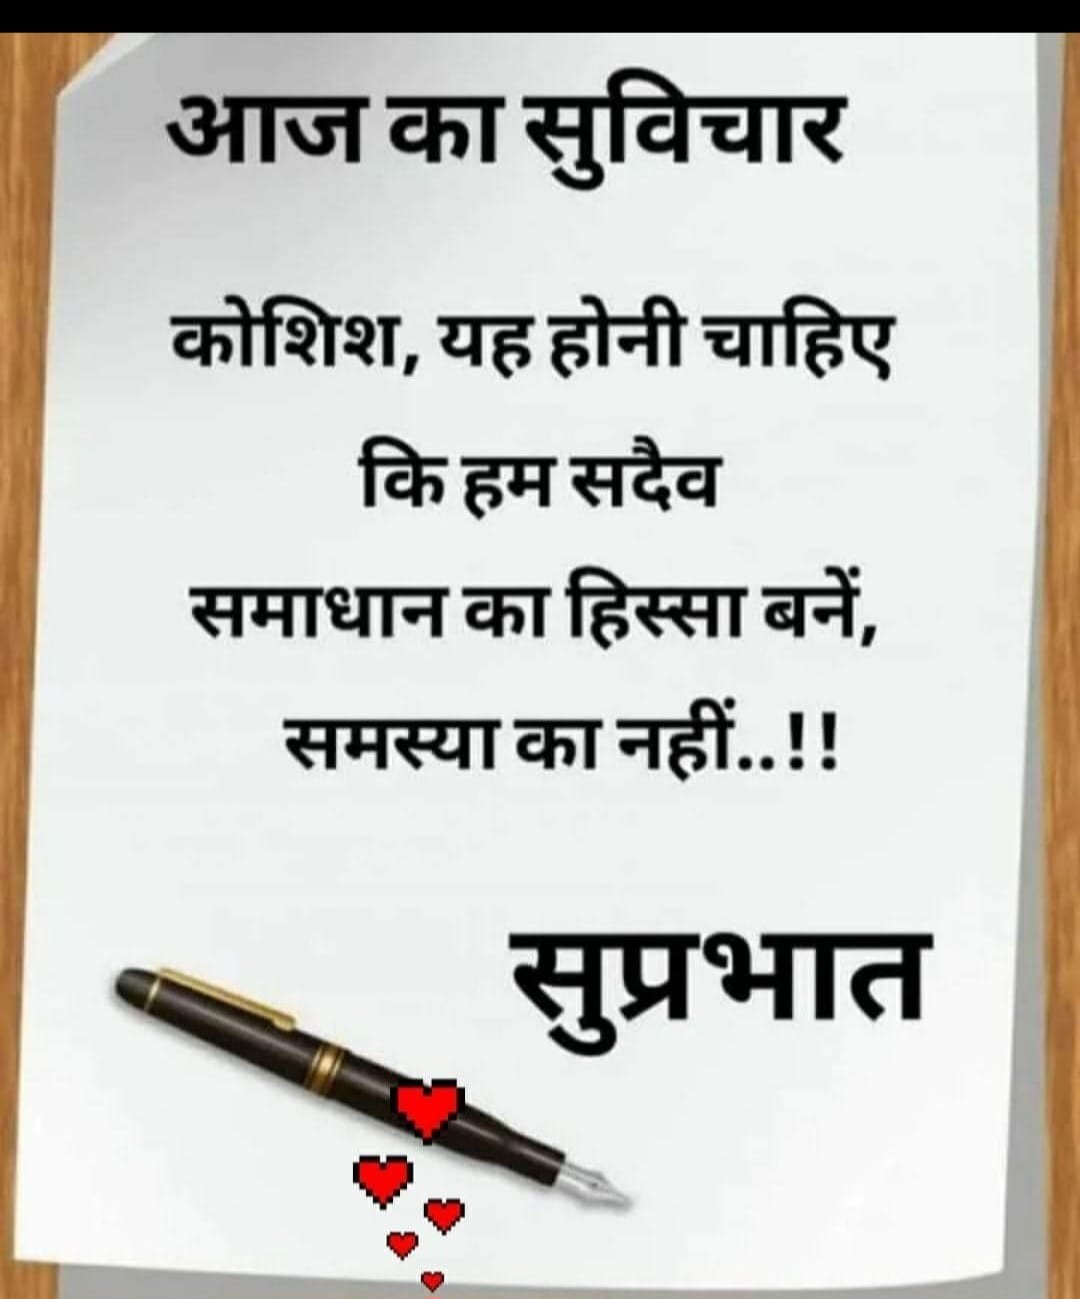 आज का सुविचार
कोशिश, यह होनी चाहिए
कि हम सदैव
समाधान का हिस्सा बनें,
समस्या का नहीं..!!
सुप्रभात